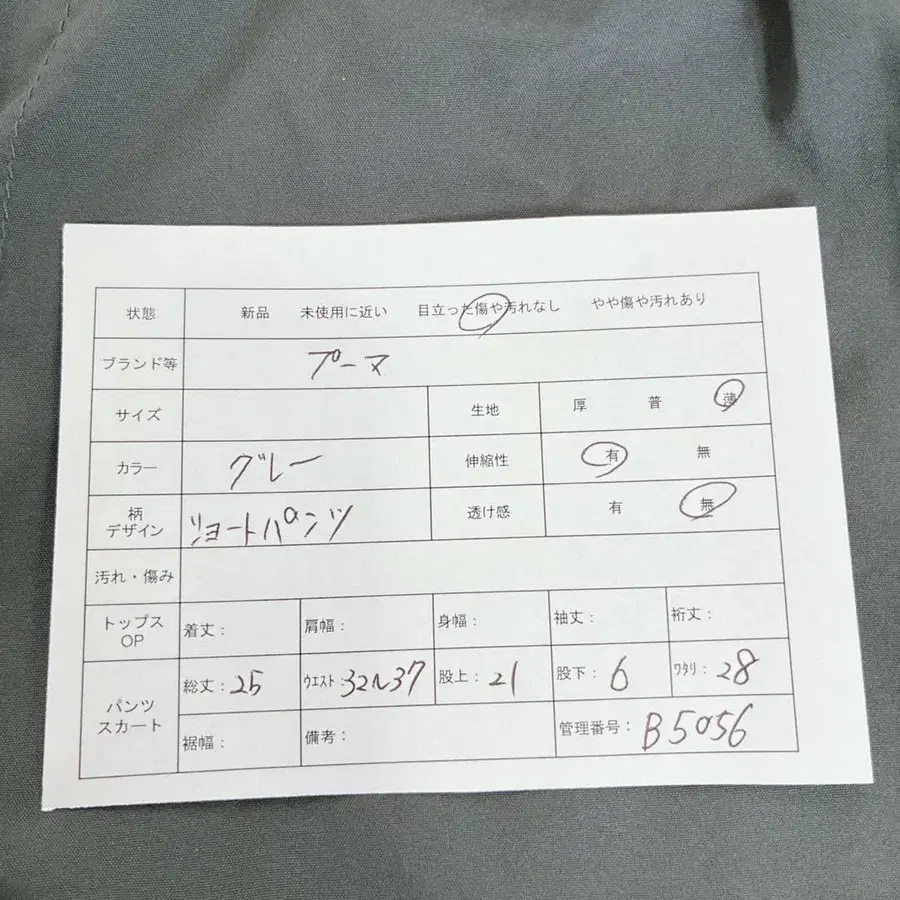 状態 新品 未使用に近い 目立った傷や汚れなし やや傷や汚れあり
ブランド等 プーマ
サイズ 生地 厚 普 薄
カラー グレー 伸縮性 有 無
柄
デザイン ショートパンツ 透け感 有 無
汚れ・傷み
トップス
OP 着丈: 肩幅: 身幅: 袖丈: 裄丈:
パンツ
スカート 総丈:25 ウエスト:32~37 股上:21 股下:6 ワタリ:28
裾幅: 備考: 管理番号:B5056